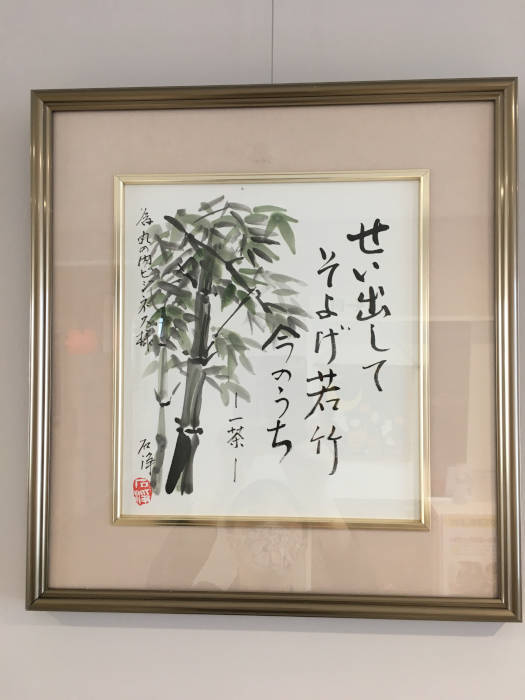 せい出して
そよげ若竹
今のうち
―一茶―
為丸の内ビジネス様
石浄